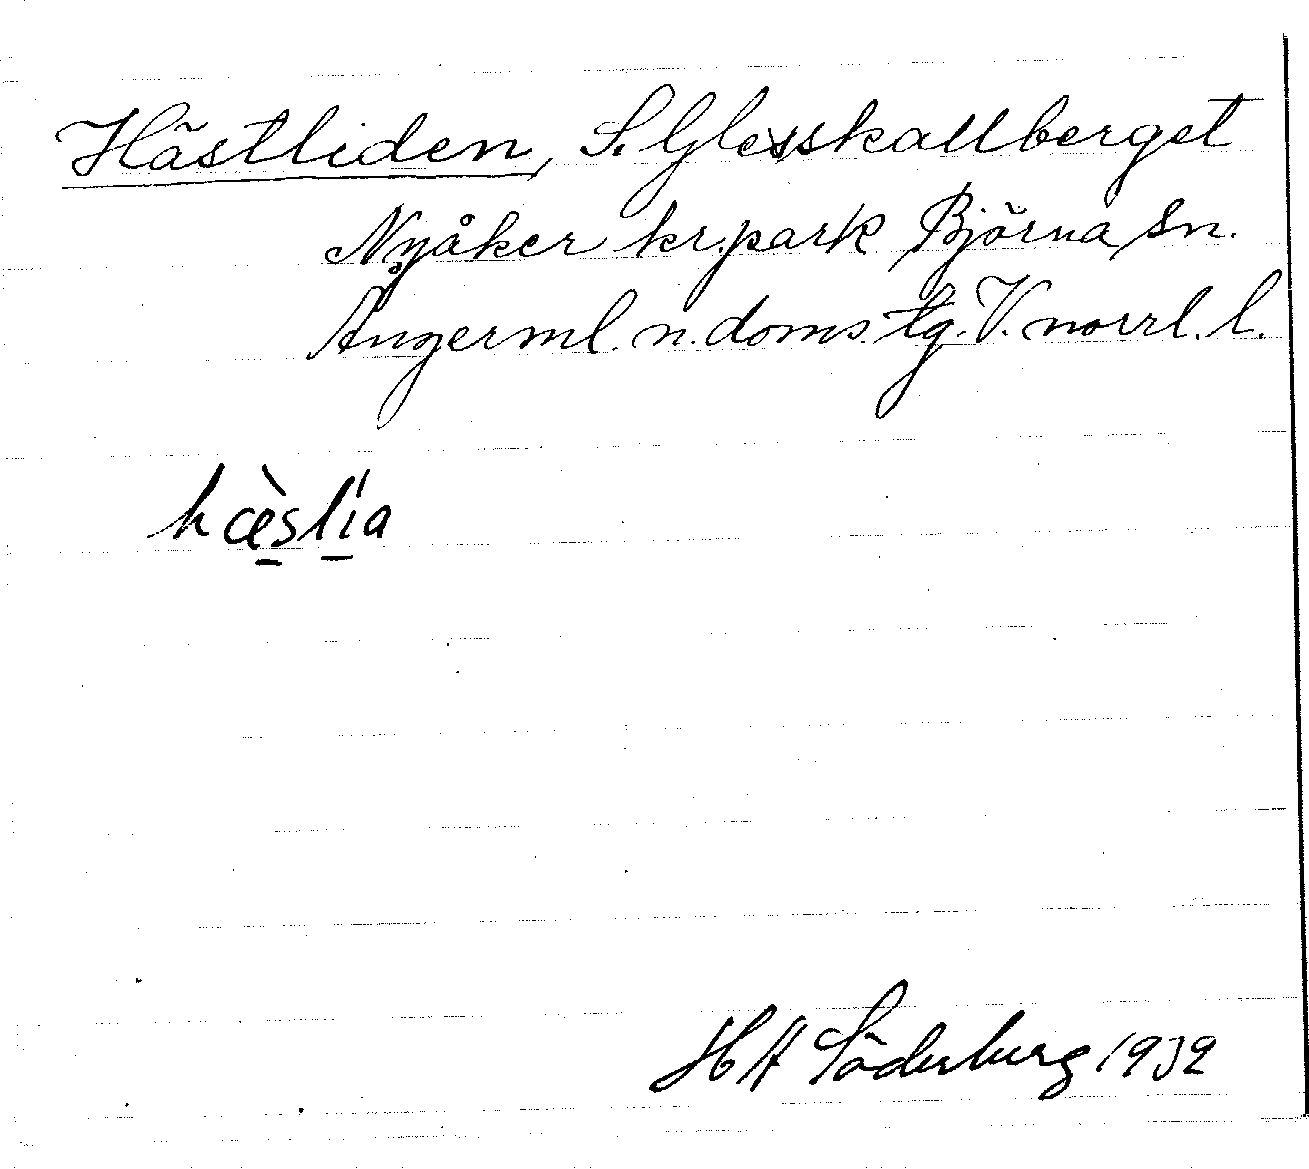 Hästliden, S. Glesskallberget
Nyåker kr.park Björna sn.
Ångerml. n. doms. tg. V. norrl. l.
hæ̀slía
H A Söderberg 1932